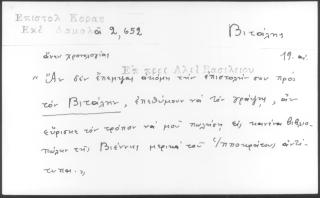 Επιστολ Κοραη
Εκδ Δαμαλᾶ 2, 652
Βιτάλης
ἄνευ χρονολογίας
19. αι.
Ἐπ πρὸς Ἀλεξ Βασιλείου
"Ἂν δὲν ἔπεμψας ἀκόμη τὴν ἐπιστολήν σου πρὸς
τὸν Βιτάλην, ἐπεθύμουν νὰ τὸν γράψῃς, ἂν
εὕρισκε τὸν τρόπον νὰ μοῦ πωλήσῃ εἰς κανένα βιβλιο-
πώλην τῆς Βιέννης μερικὰ τοῦ Ἱπποκράτους ἀντί-
τυπα."